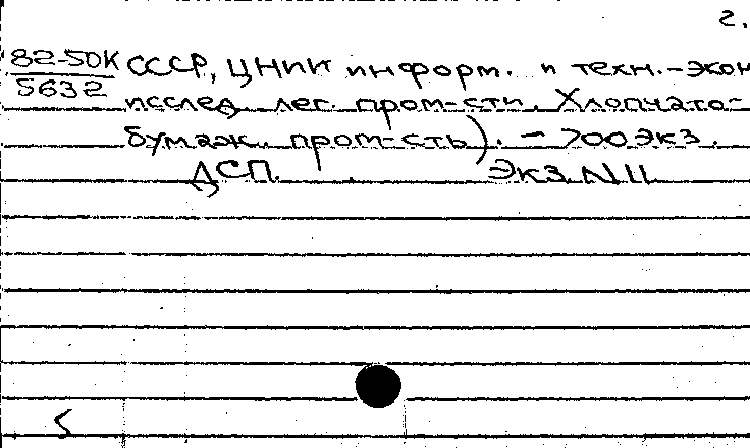 2.
82-50К СССР, ЦНИИ информ. и техн.-экон
5632 исслед. лег. пром-сти. Хлопчато-
бумаж. пром-сть). - 700 экз.
ДСП. Экз. N 11